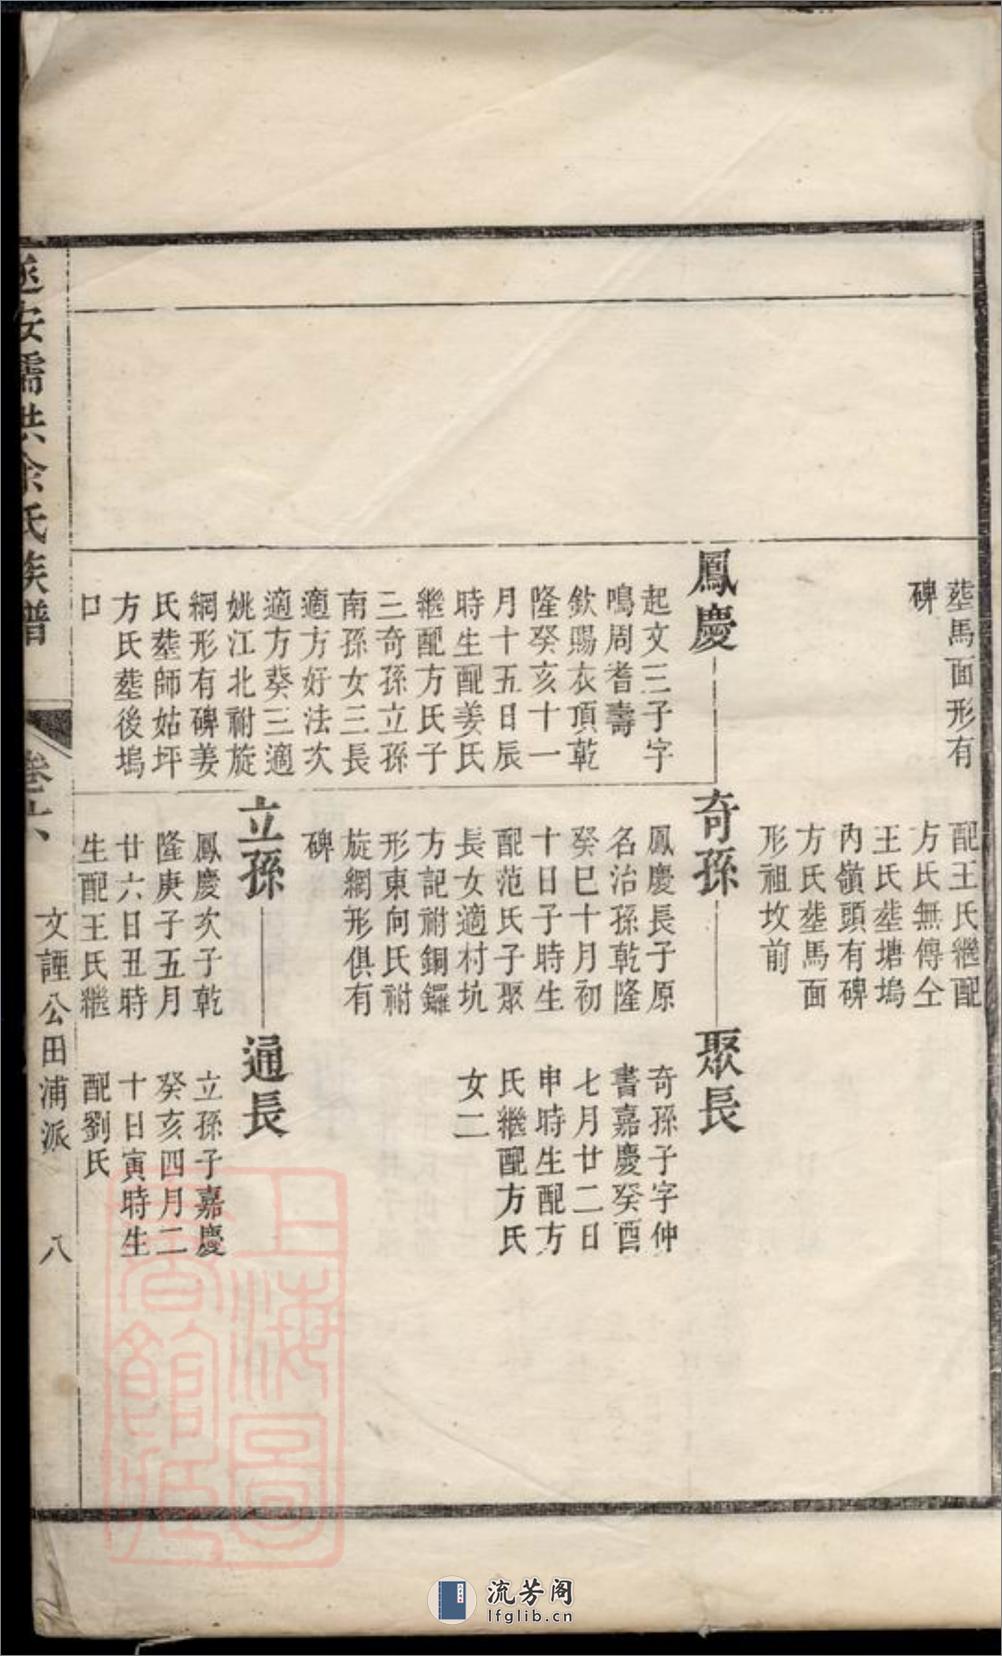 塟馬面形有
碑
配王氏繼配
方氏無傳仝
王氏塟塘塢
內嶺頭有碑
方氏塟馬面
形祖坟前
鳳慶
起文三子字
鳴周耆壽
欽賜衣頂乾
隆癸亥十一
月十五日辰
時生配姜氏
繼配方氏子
三奇孫立孫
南孫女三長
適方好法次
適方葵三適
姚江北祔旋
網形有碑姜
氏塟師姑坪
方氏塟後塢
口
奇孫
鳳慶長子原
名治孫乾隆
癸巳十月初
十日子時生
配范氏子聚
長女適村坑
方記祔銅鑼
形東向氏祔
旋網形俱有
碑
聚長
奇孫子字仲
書嘉慶癸酉
七月廿二日
申時生配方
氏繼配方氏
女二
立孫
鳳慶次子乾
隆庚子五月
廿六日丑時
生配王氏繼
通長
立孫子嘉慶
癸亥四月二
十日寅時生
配劉氏
遂安儒洪余氏族譜
卷十六
文諲公田浦派
八
上海圖
書館藏
流芳阁
lfglib.cn